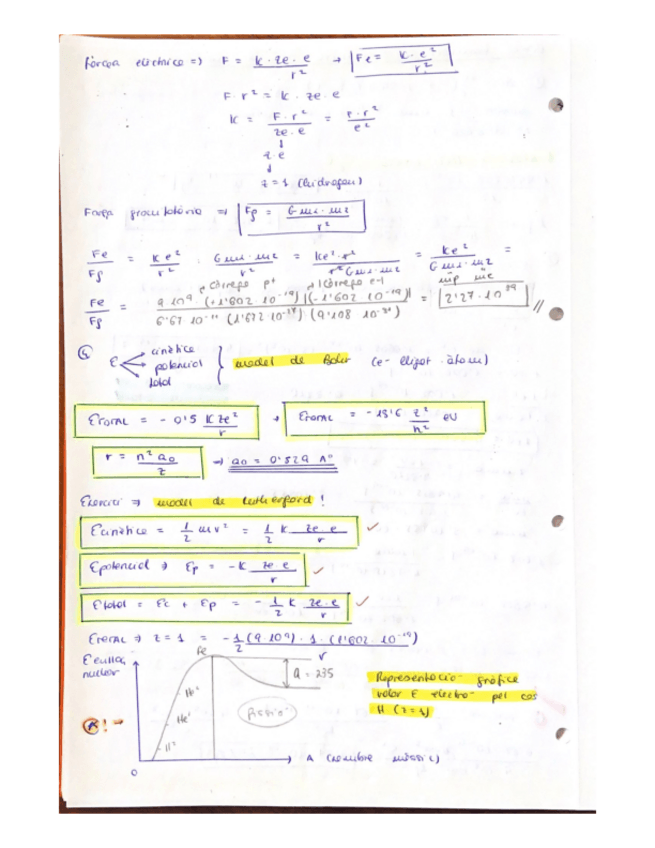 Força elèctrica => F = K · ze · e / r² → Fe = K · e² / r²
F · r² = K · ze · e
K = F · r² / ze · e = F · r² / e²
↓
z e
↓
z = 1 (hidrogen)
Força gravitatòria => Fg = G m1 · m2 / r²
Fe / Fg = K e² / r² : G m1 · m2 / r² = Ke² · r² / r² G m1 · m2 = Ke² / G m1 · m2 =
càrrega p+ càrrega e-1 mp me
Fe / Fg = 9·10⁹ · (+1'602 · 10⁻¹⁹) |(-1'602 · 10⁻¹⁹)| / 6'67 · 10⁻¹¹ (1'672 · 10⁻²⁷) (9'108 · 10⁻³¹) = 2'27 · 10³⁹ //
E cinètica
potencial model de Bohr (e- lligat àtom)
total
ETOTAL = - 0'5 K Ze² / r → ETOTAL = - 13'6 z² / n² eV
r = n² a0 / z → a0 = 0'529 A°
Exercici => model de Rutherford !
Ecinètica = 1/2 m v² = 1/2 K ze · e / r ✓
Epotencial => Ep = - K ze · e / r ✓
Etotal = Ec + Ep = - 1/2 K ze · e / r ✓
ETOTAL => z = 1 = - 1/2 (9·10⁹) · 1 · (1'602 · 10⁻¹⁹) / r
E enllaç
nuclear
Fe
A = 235
Representació gràfica
valor E electró pel cas
H (z=1)
He
H²
! -
A (nombre màssic)
0